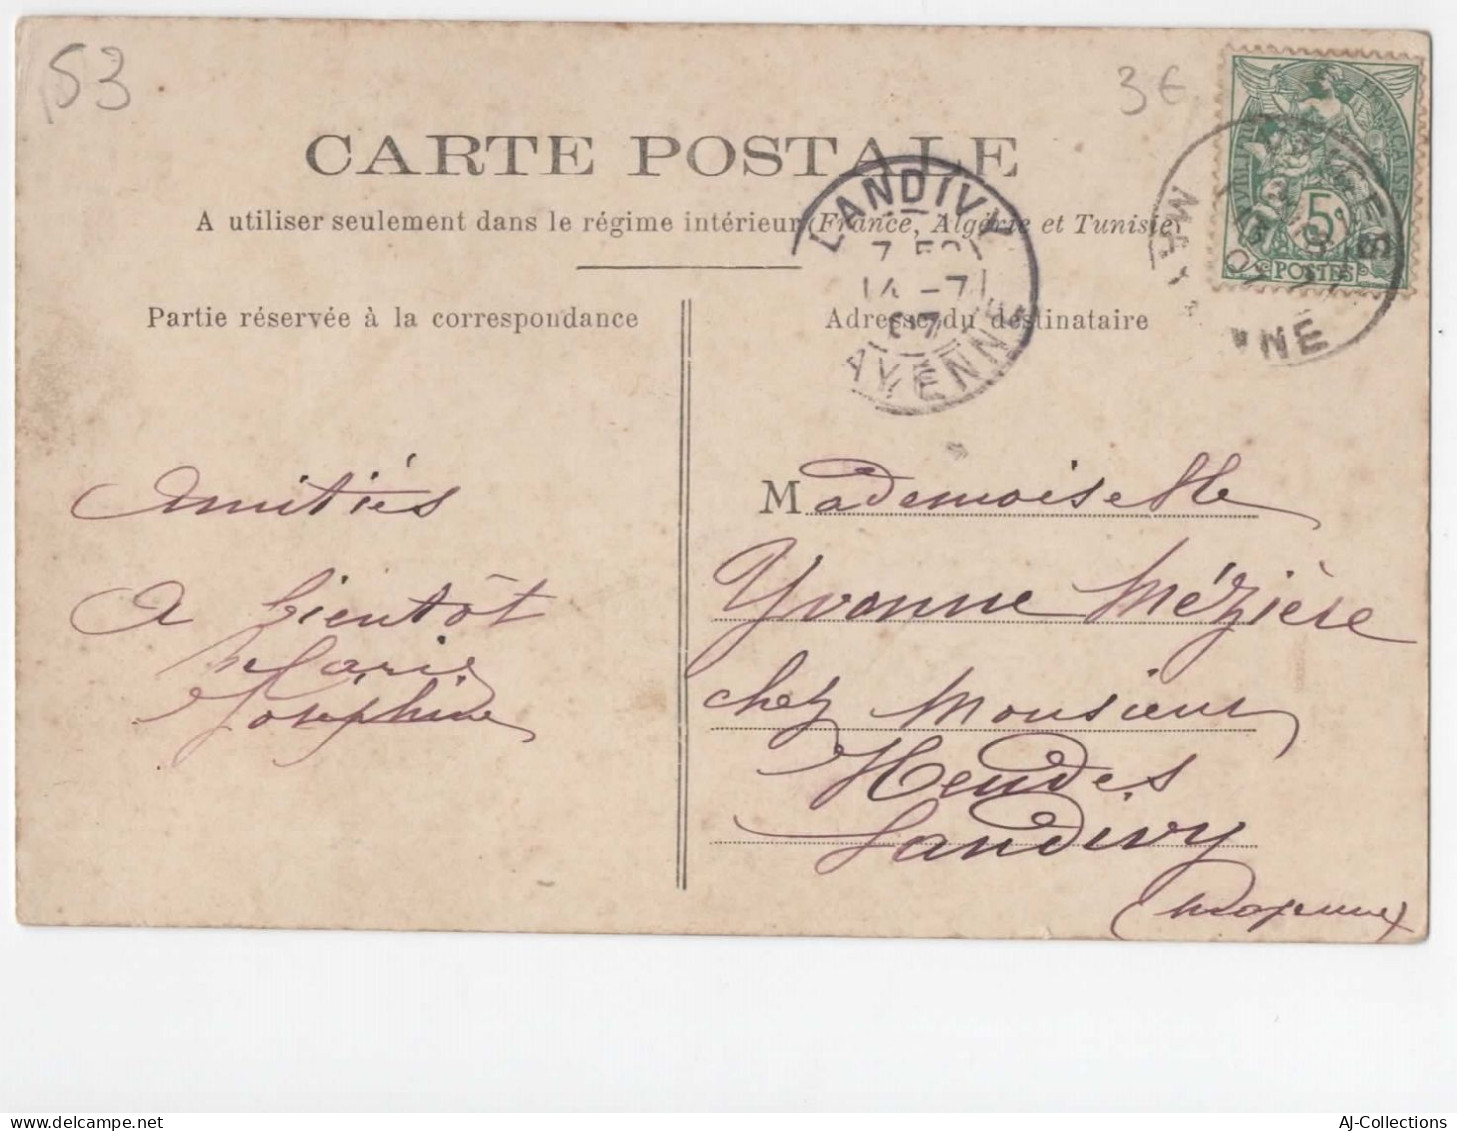 53
3€
CARTE POSTALE
A utiliser seulement dans le régime intérieur (France, Algérie et Tunisie)
LANDIVY
7 50
14 -7
07
MAYENNE
5c
POSTES
Partie réservée à la correspondance
Adresse du destinataire
Amitiés
A bientôt
Marie
Joséphine
Mademoiselle
Yvonne Mézière
chez Monsieur
Hendes
Landivy
(Mayenne)
AJ-Collections